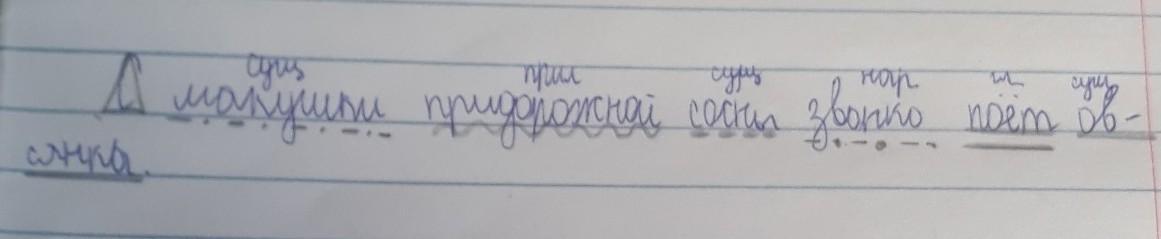 сущ прил сущ нар гл сущ
С макушки придорожной сосны звонко поёт ов-
сянка.